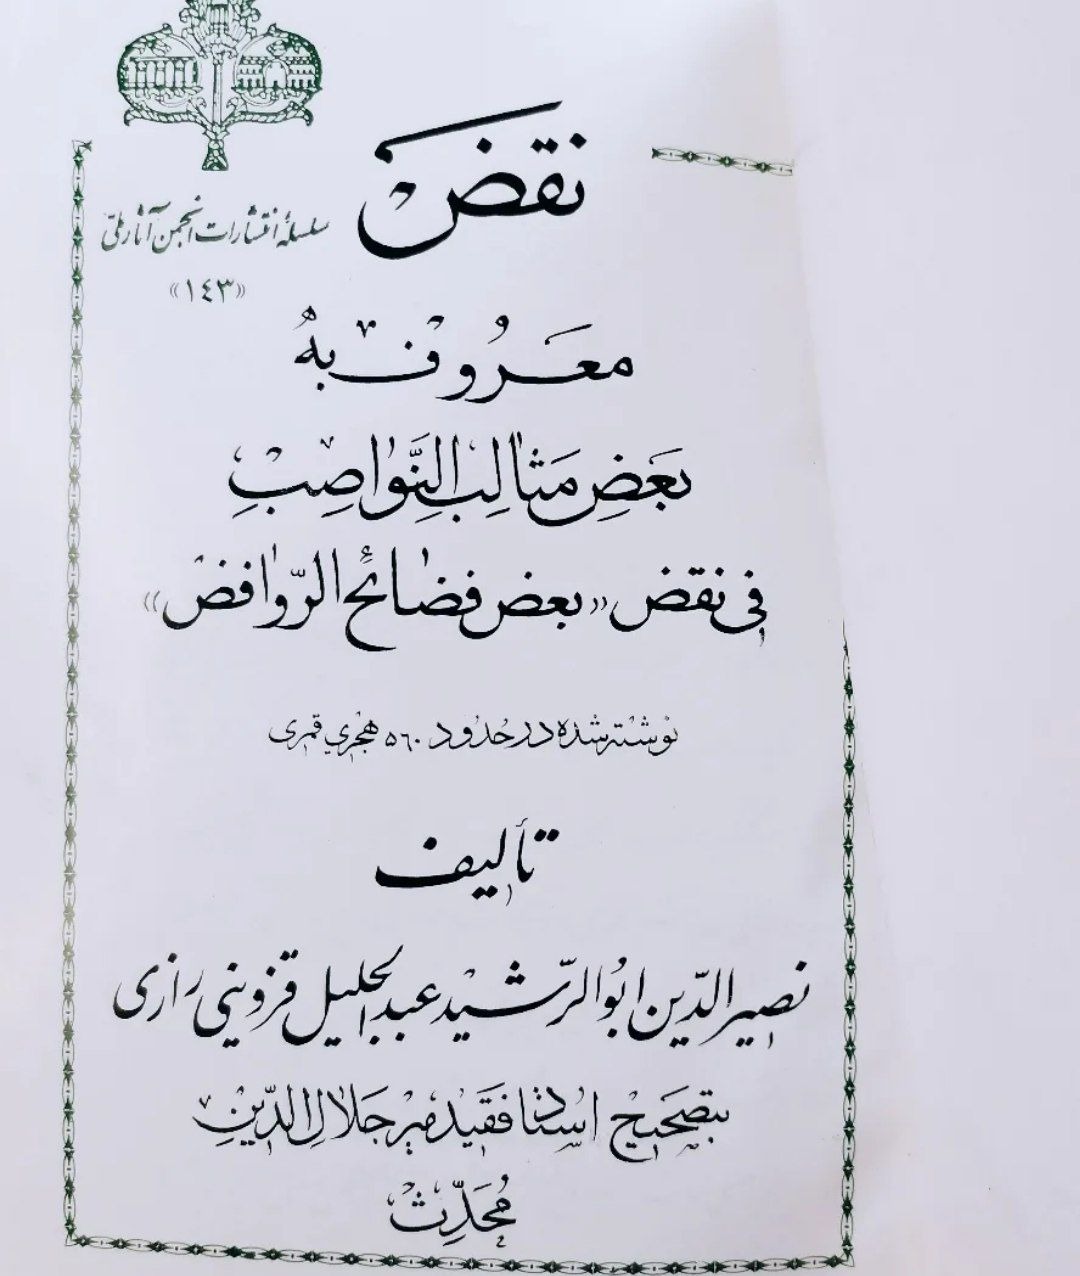 نقض
سلسلهٔ انتشارات انجمن آثار ملّی
«١٤٣»
معروف به
بعَضِ مَثالِبِ النَّواصِبِ
فی نقض «بعض فضائح الرّوافض»
نوشته شده در حدود ۵٦۰ هجری قمری
تألیف
نصیر الدّین ابوالرّشید عبدالجلیل قزوینی رازی
بتصحیح استاد فقید میر جلال الدّین
مُحَدِّث